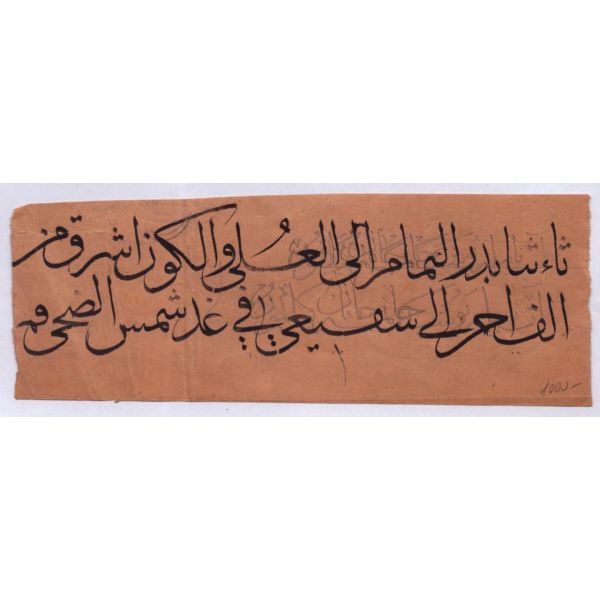 ثاء ثنا بدر التمام الى العُلى والكون اشرق من
الف احرى الى سفيعي في غد شمس الضحى قم
1000-